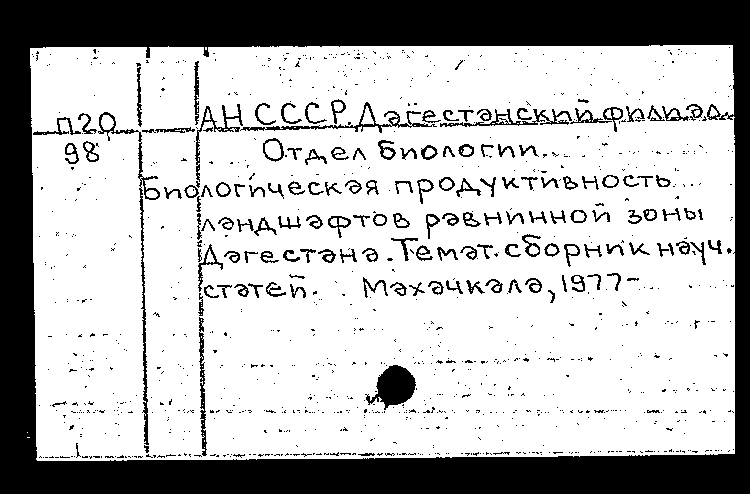 п20 АН СССР. Дагестанский филиал.
98 Отдел биологии.
Биологическая продуктивность
ландшафтов равнинной зоны
Дагестана. Темат. сборник науч.
статей. Махачкала, 1977-